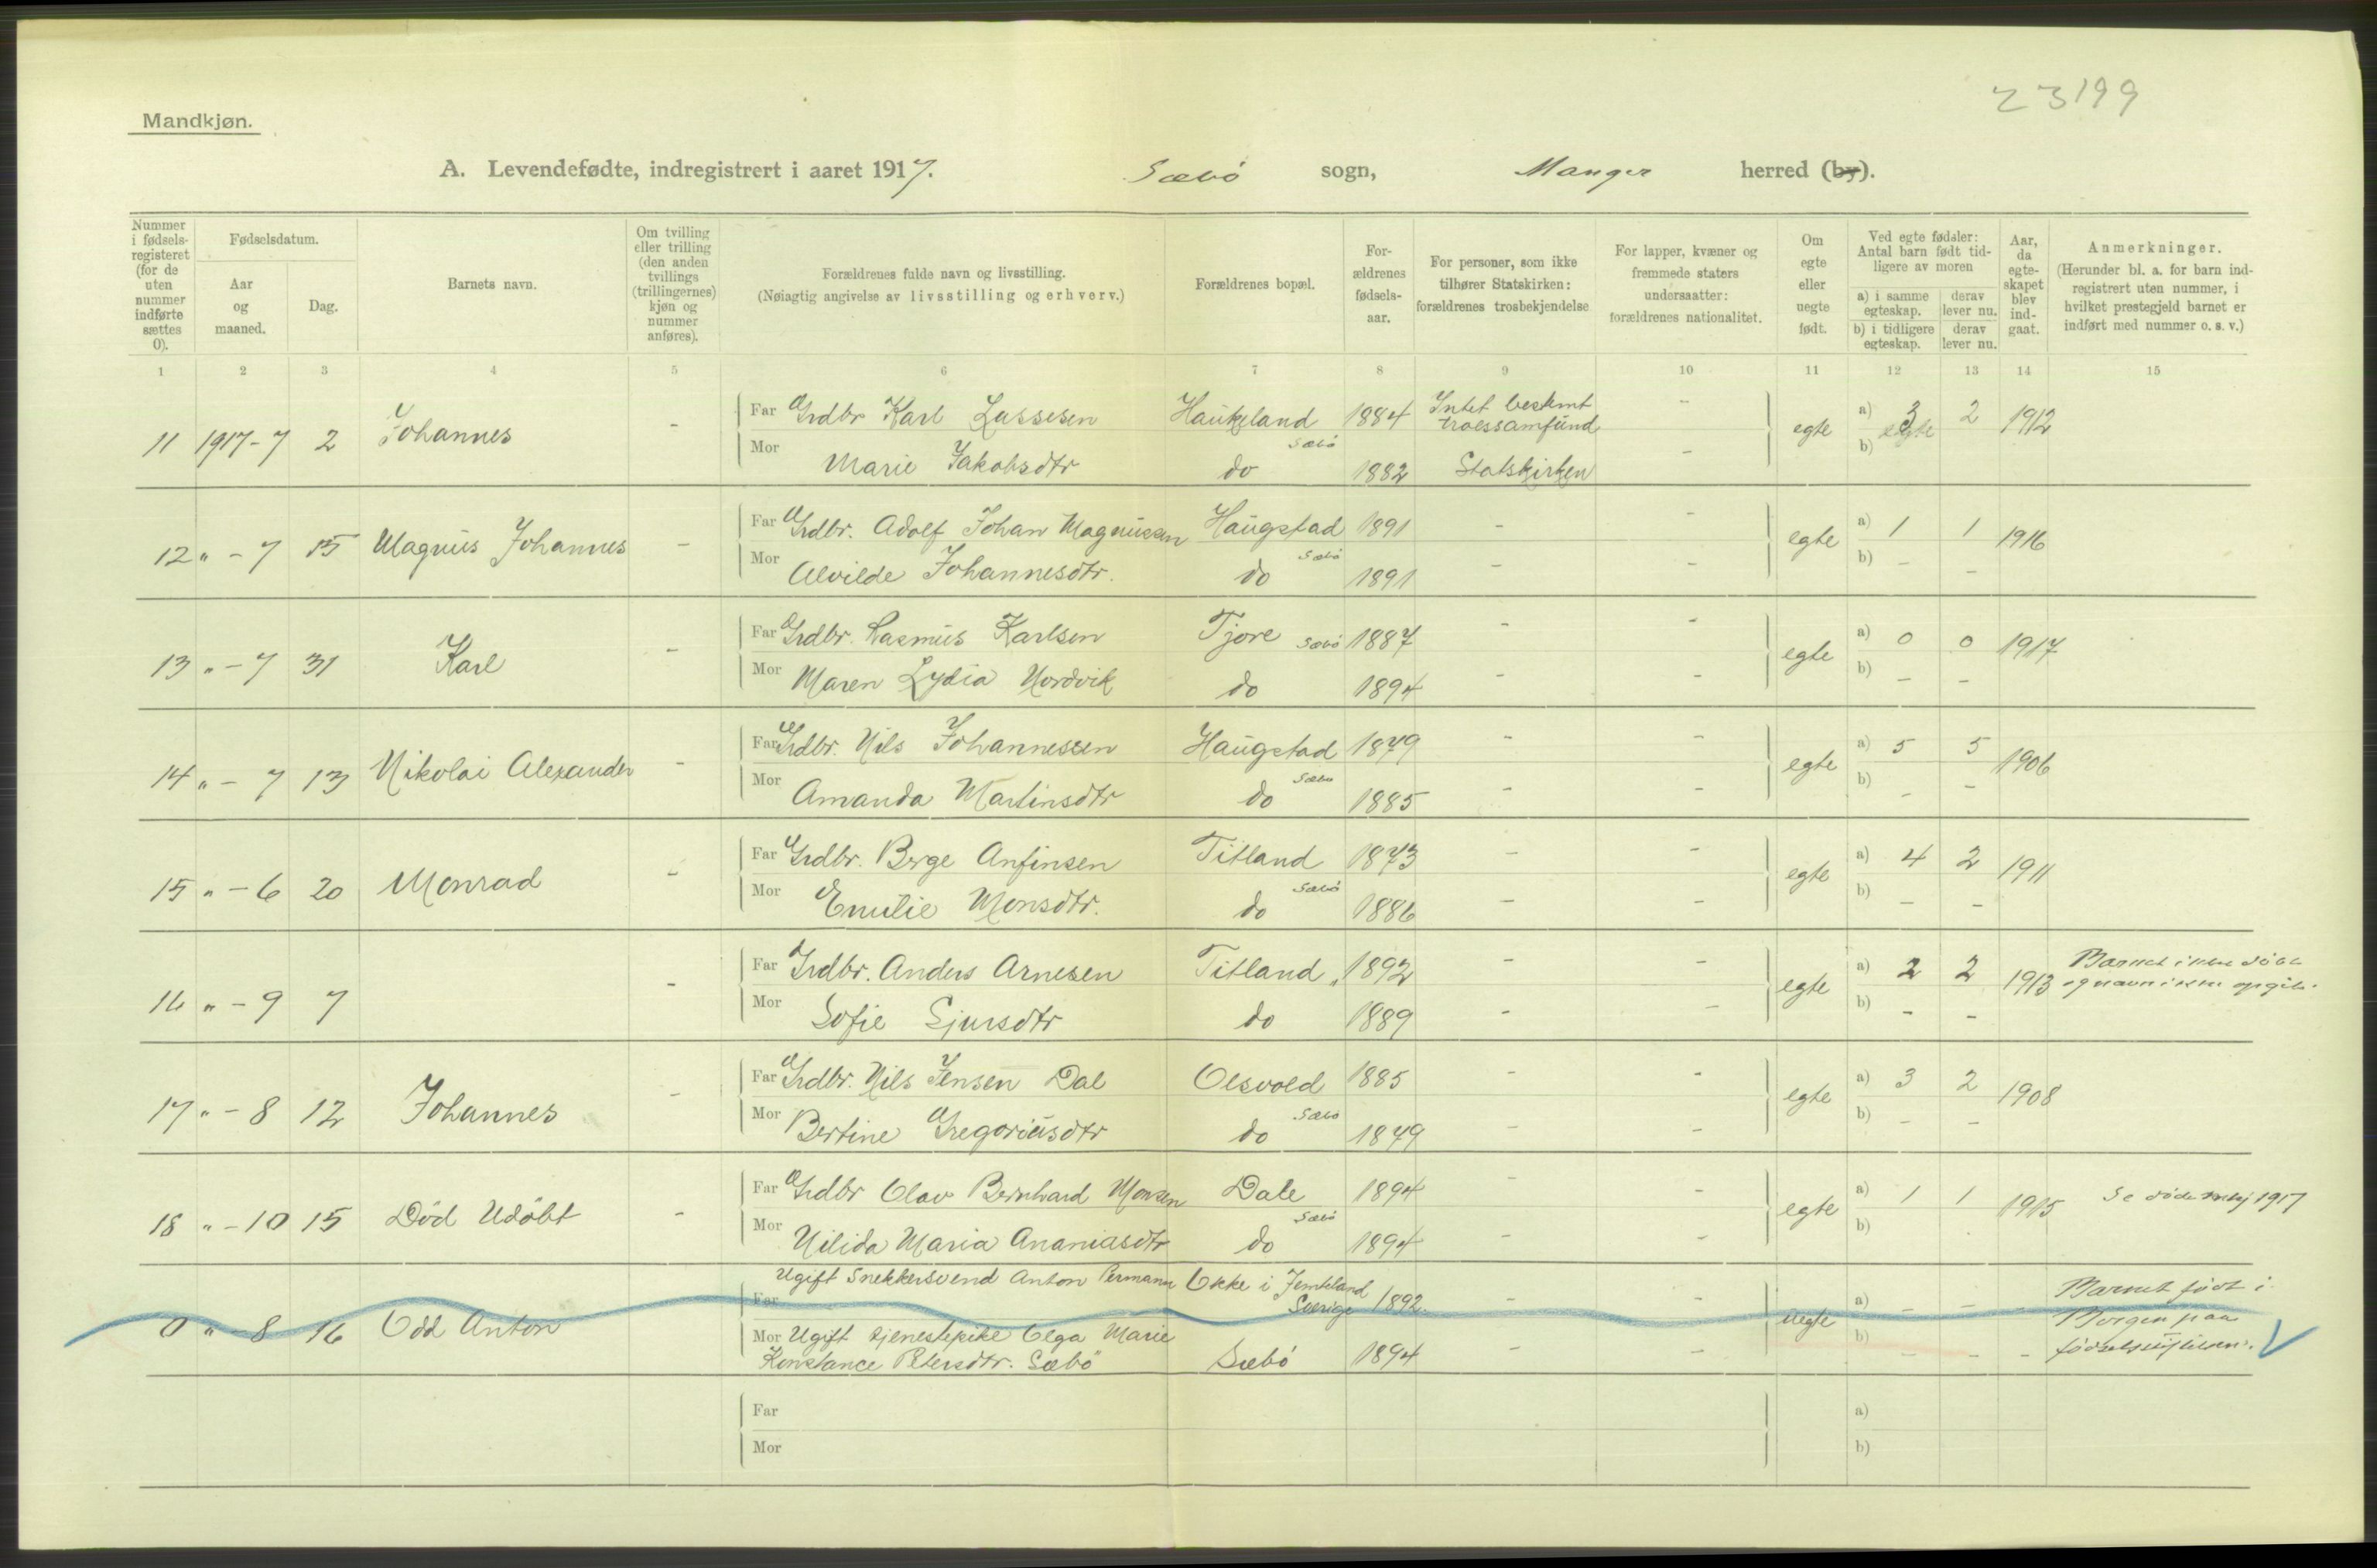 23199
Mandkjøn.
A. Levendefødte, indregistrert i aaret 1917. Sæbö sogn, Manger herred (by).
Nummer i fødsels-registeret (for de uten nummer indførte sættes 0).
Fødselsdatum.
Aar og maaned.
Dag.
Barnets navn.
Om tvilling eller trilling (den anden tvillings (trillingernes) kjøn og nummer anføres).
Forældrenes fulde navn og livsstilling.
(Nøiagtig angivelse av livsstilling og erhverv.)
Forældrenes bopæl.
For-ældrenes fødsels-aar.
For personer, som ikke tilhører Statskirken: forældrenes trosbekjendelse
For lapper, kvæner og fremmede staters undersaatter: forældrenes nationalitet.
Om egte eller uegte født.
Ved egte fødsler: Antal barn født tid-ligere av moren
a) i samme egteskap. derav lever nu.
b) i tidligere egteskap. derav lever nu.
Aar, da egte-skapet blev ind-gaat.
Anmerkninger.
(Herunder bl. a. for barn ind-registrert uten nummer, i hvilket prestegjeld barnet er indført med nummer o. s. v.)
1 2 3 4 5 6 7 8 9 10 11 12 13 14 15
11 1917-7 2 Johannes - Far Grdbr Karl Lassesen Haukeland 1884 Intet bestemt troessamfund - egte a) 3 2 1912
Mor Marie Jakobsdtr do Sæbö 1882 Statskirken - b) egte
12 " - 7 15 Magnus Johannes - Far Grdbr. Adolf Johan Magnussen Haugstad 1891 - - egte a) 1 1 1916
Mor Alvilde Johannesdtr. do Sæbö 1891 - - b) - -
13 " - 7 31 Karl - Far Grdbr. Rasmus Karlsen Tjore Sæbö 1887 - - egte a) 0 0 1917
Mor Maren Lydia Nordvik do 1894 - - b) - -
14 " - 7 13 Nikolai Alexander - Far Grdbr. Nils Johannessen Haugstad 1879 - - egte a) 5 5 1906
Mor Amanda Martinsdtr do Sæbö 1885 - - b) - -
15 " - 6 20 Monrad - Far Grdbr. Berge Anfinsen Titland 1873 - - egte a) 4 2 1911
Mor Emilie Monsdtr. do Sæbö 1886 - - b) - -
16 " - 9 7 - Far Grdbr. Anders Arnesen Titland " 1892 - - egte a) 2 2 1913 Barnet ikke döbt og navn ikke opgit.
Mor Sofie Sjursdtr do 1889 - - b) - -
17 " - 8 12 Johannes - Far Grdbr. Nils Jensen Dal Olsvold 1885 - - egte a) 3 2 1908
Mor Bertine Gregoriusdtr do Sæbö 1879 - - b) - -
18 " - 10 15 Död Udöbt - Far Grdbr Olav Bernhard Monsen Dale 1894 - - egte a) 1 1 1915 Se döde 1917
Mor Nilida Maria Ananiasdtr do Sæbö 1894 - - b)
0 " - 8 16 Odd Anton Far Ugift Snekkersvend Anton Permann Okke i Jemteland Sverige 1892 - - uegte a) - - - Barnet födt i Bergen paa födselsstiftelsen.
Mor Ugift tjenestepike Olga Marie Konstance Petersdtr. Sæbö Sæbö 1894 - - b) - - -
Far a)
Mor b)